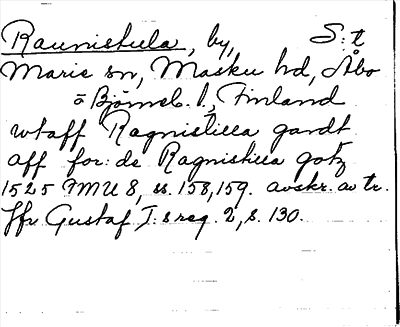 Raunistula, by, S:t
Marie sn, Masku hd, Åbo
o Björneb. l, Finland
wtaff Ragnistilla gardt
aff for: de Ragnistilla gotz
1525 FMU 8, ss. 158, 159. avskr. av tr.
Jfr Gustaf I:s reg. 2, s. 130.